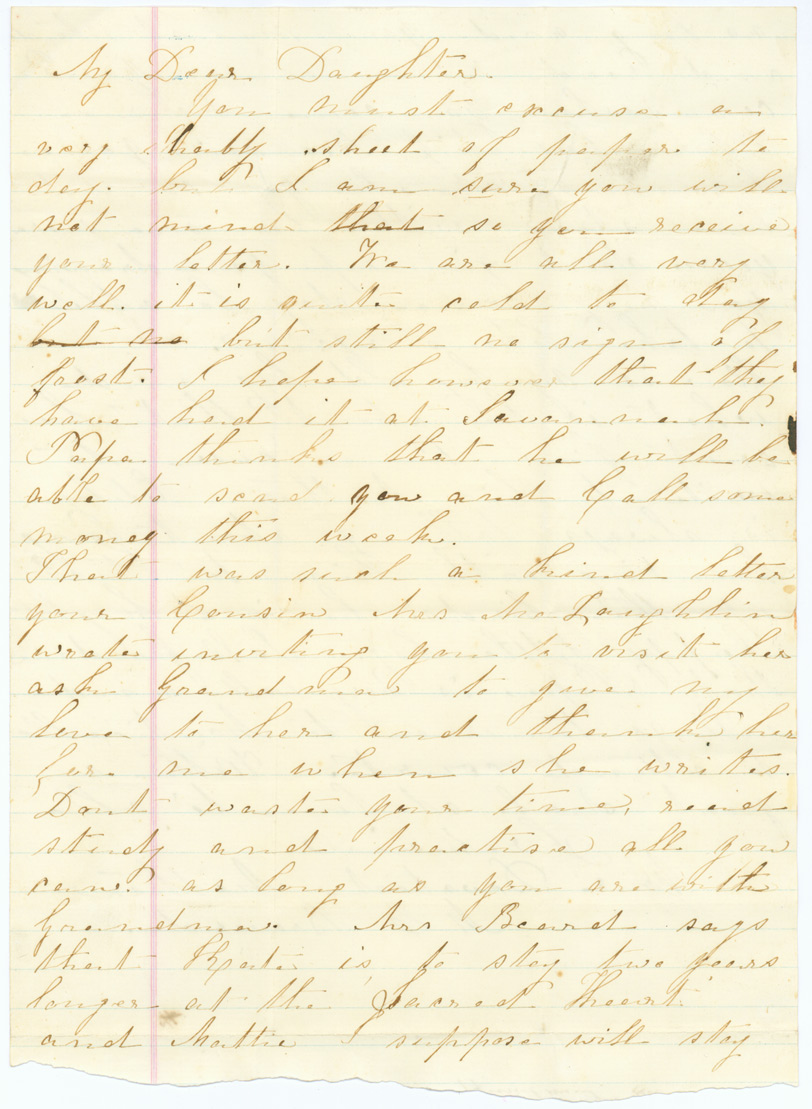 My Dear Daughter.
You must excuse a
very shably sheet of paper to
day. but I am sure you will
not mind that so you receive
your letter. We are all very
well. it is quite cold to day
but no but still no sign of
frost. I hope however that they
have had it at Savannah.
Papa thinks that he will be
able to send you and Call some
money this week.
That was such a kind letter
your Cousin Mrs McLaughlin
wrote inviting you to visit her
ask Grandma to give my
love to her and thank her
for me when she writes.
Dont waste your time, read
study and practise all you
can. as long as you are with
Grandma. Mrs Beard says
that Kate is to stay two years
longer at the Sacred Heart
and Mattie I suppose will stay